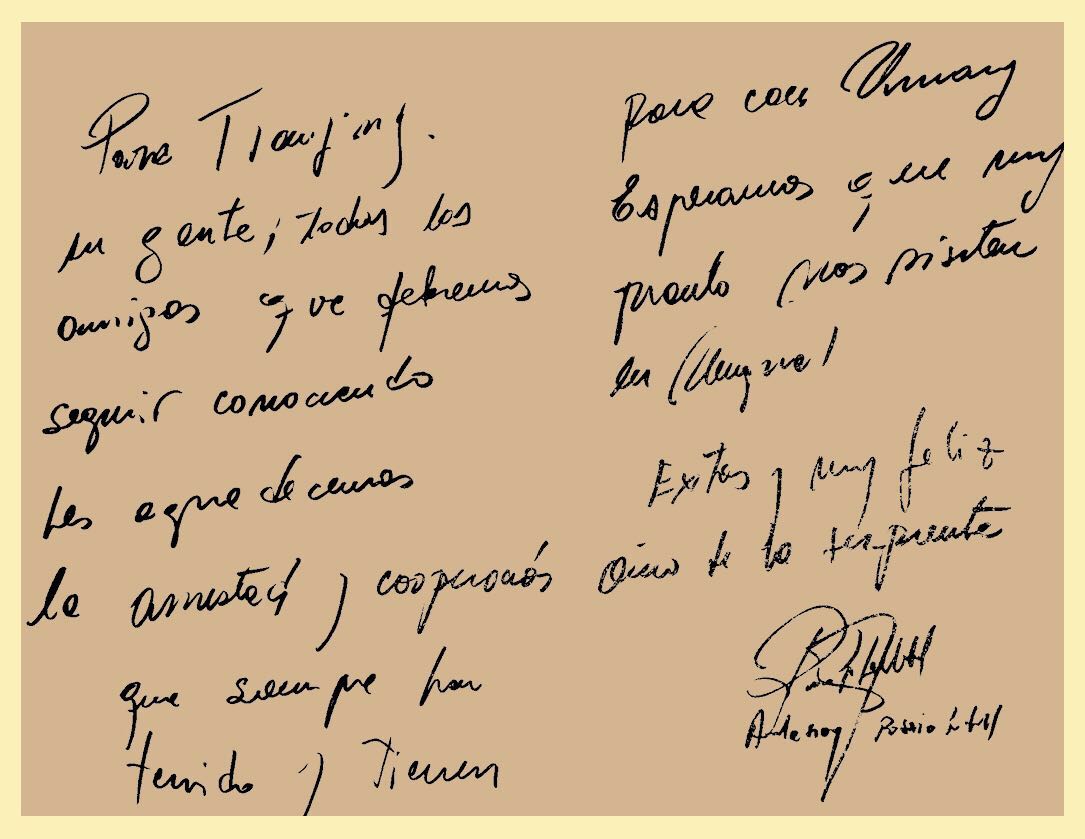 Para Tianjing.
su gente, todos los
amigos que debemos
seguir conociendo
Les agradecemos
la amistad y cooperación
que siempre han
tenido y tienen
para con Uruguay
Esperamos que muy
pronto nos visiten
en Uruguay!
Exitos y muy feliz
año de la serpiente